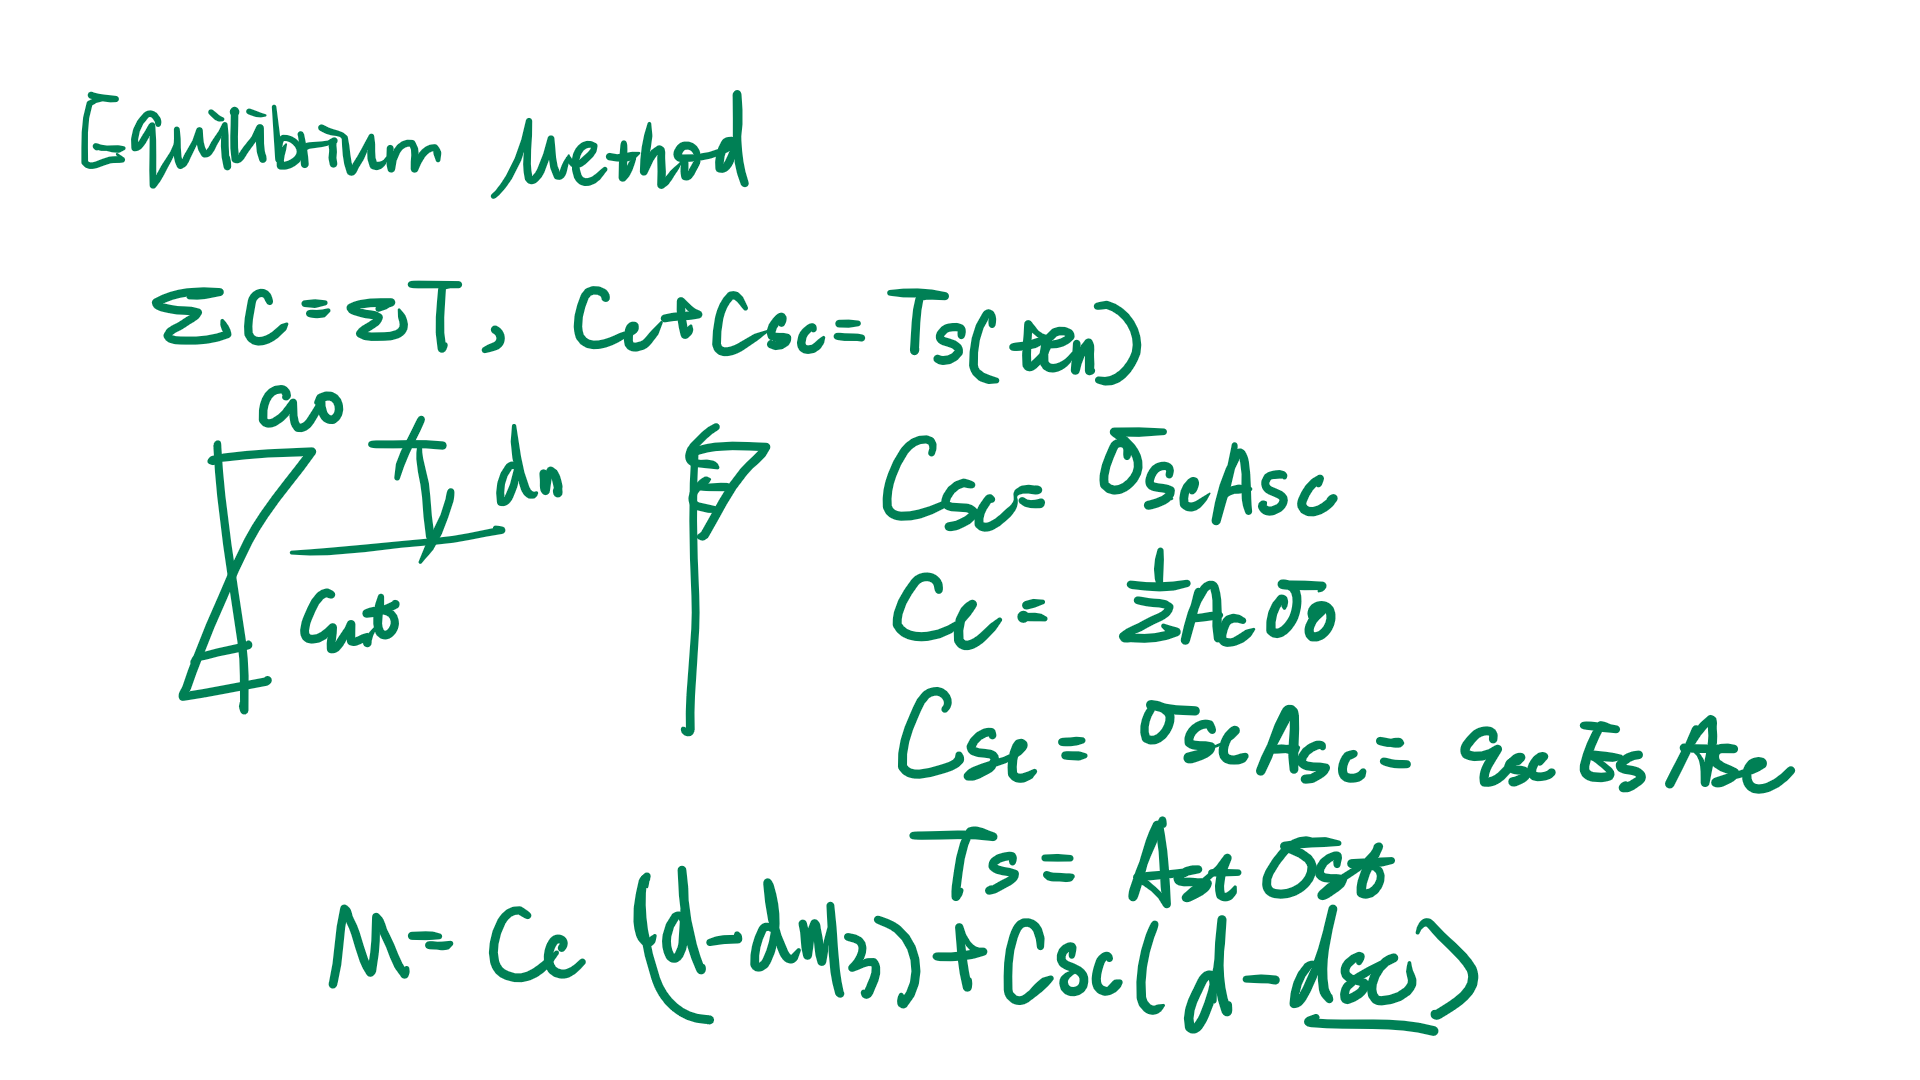 Equilibrium Method
ΣC = ΣT, Cc + Csc = Ts(ten)
dn
Csc = σsc Asc
Cc = 1/2 Ac σo
Csc = σsc Asc = εsc Es Asc
Ts = Ast σst
M = Cc (d - dn/3) + Csc (d - dsc)